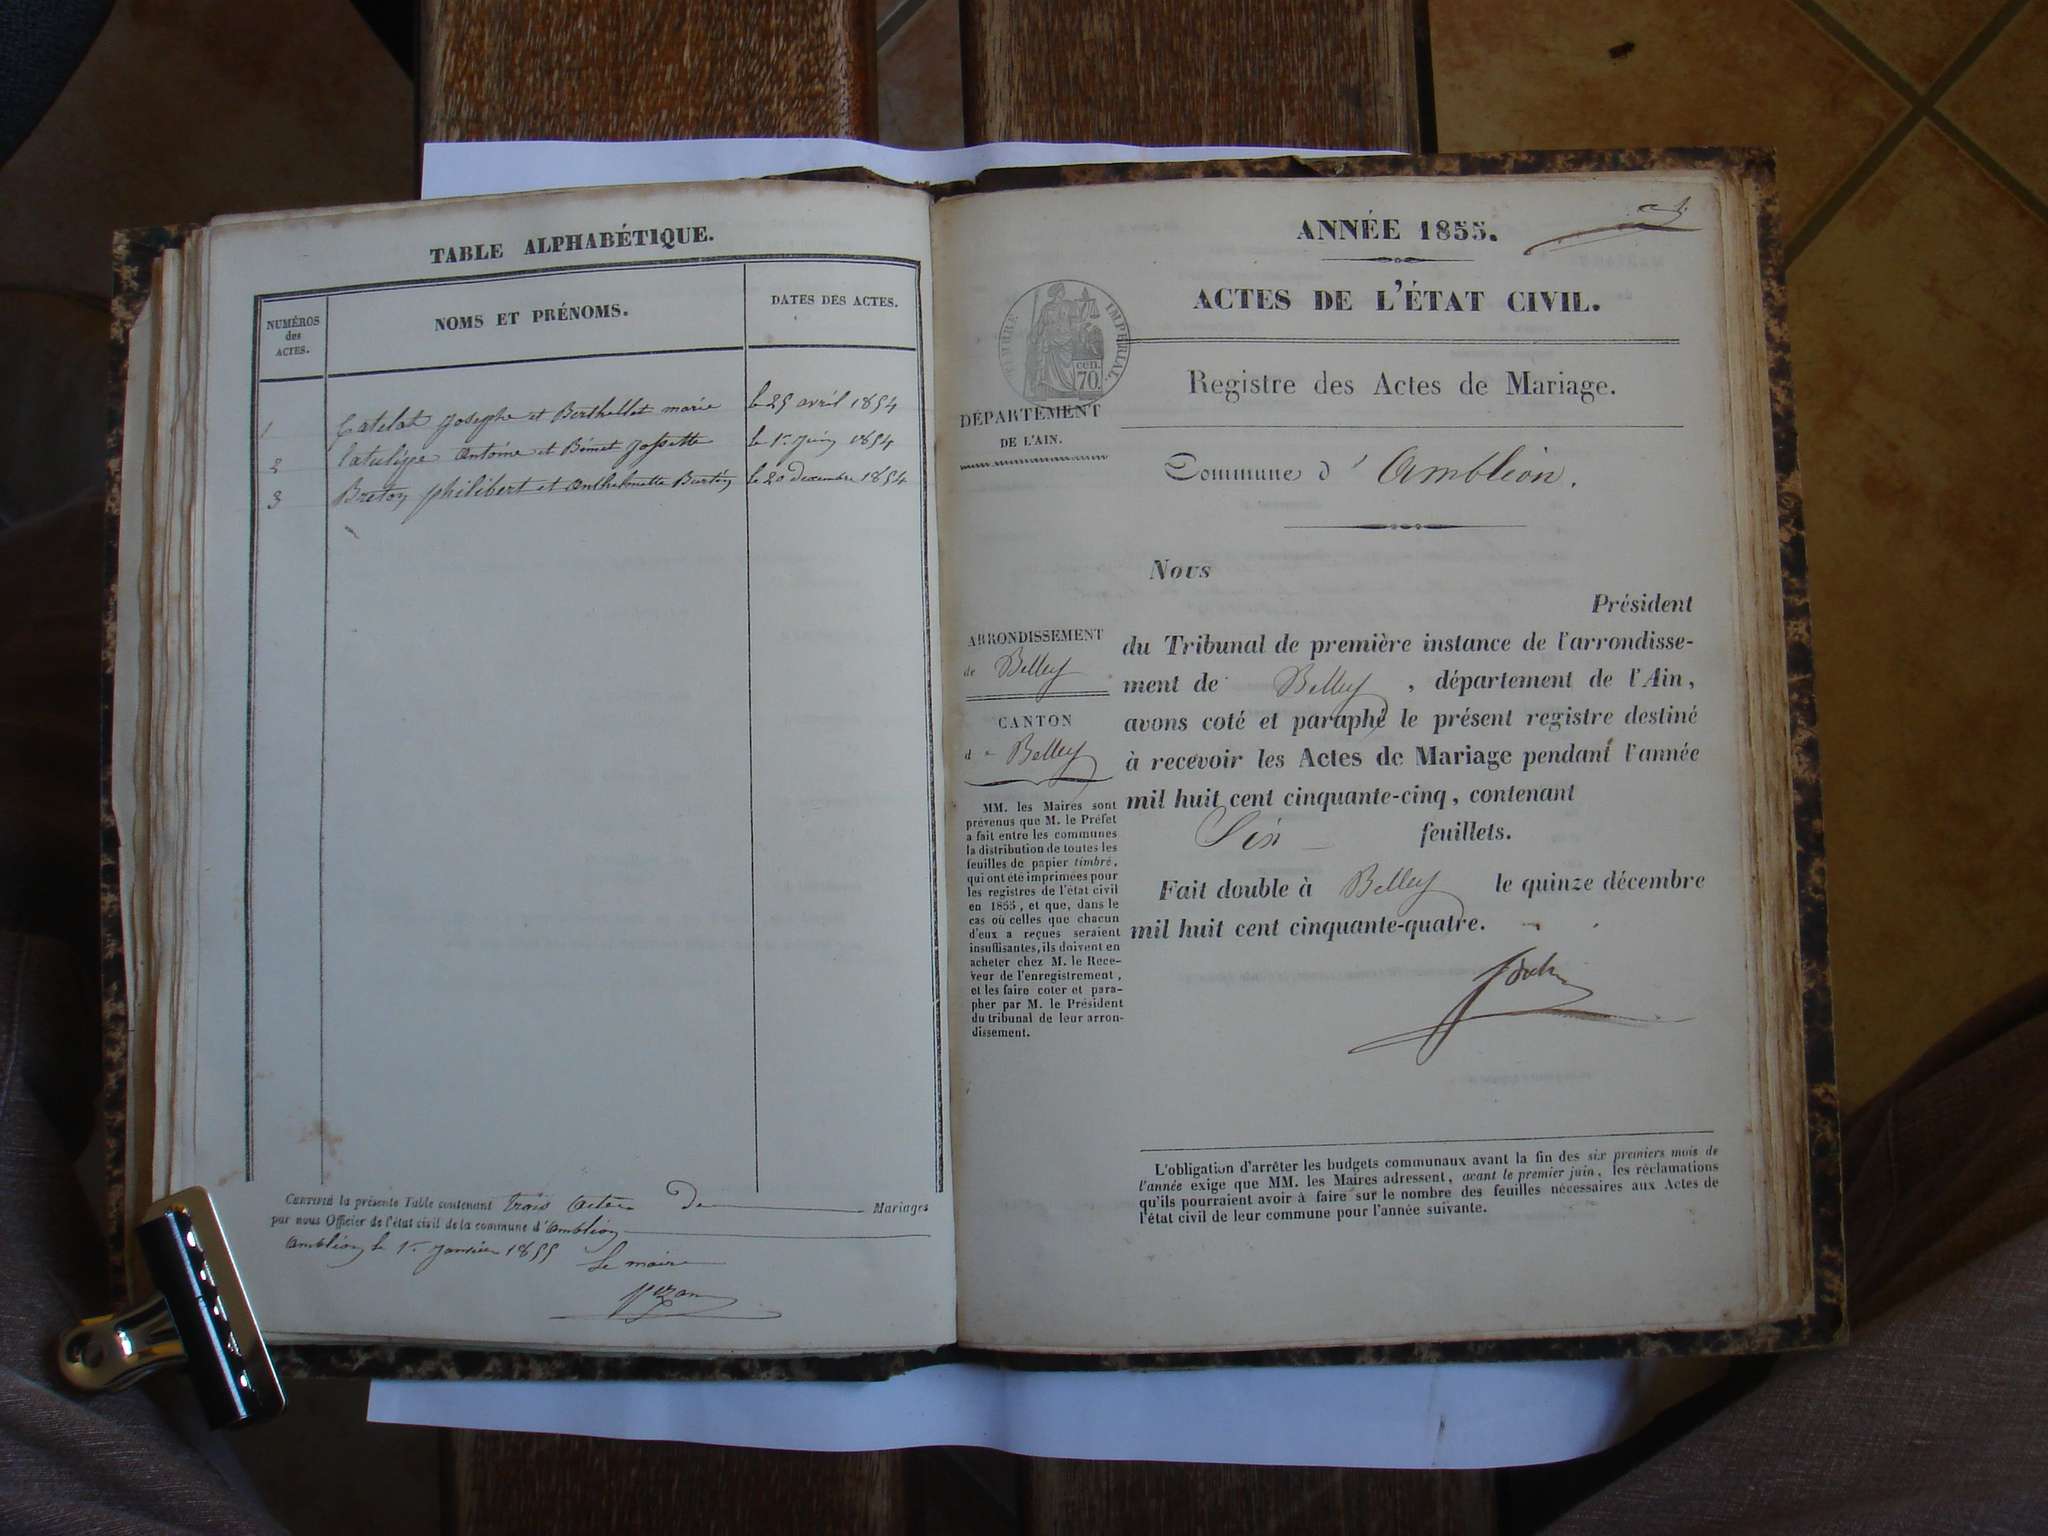 TABLE ALPHABÉTIQUE.
NUMÉROS
des
ACTES.
NOMS ET PRÉNOMS.
DATES DES ACTES.
1 Catelat Josephe et Berthellet marie le 25 avril 1854
2 Latulippe Antoine et Bémet Josette le 1er Juin 1854
3 Breton philibert et Anthelmette Burtin le 20 decembre 1854
CERTIFIÉ la présente Table contenant trois actes De Mariages
par nous Officier de l'état civil de la commune d'Ambléon
Ambléon le 1er Janvier 1855
Le maire
ANNÉE 1855.
ACTES DE L'ÉTAT CIVIL.
TIMBRE IMPÉRIAL.
cen.
70.
Registre des Actes de Mariage.
DÉPARTEMENT
DE L'AIN.
Commune d'Ambléon.
Nous
Président
du Tribunal de première instance de l'arrondisse-
ment de Belley, département de l'Ain,
avons coté et paraphé le présent registre destiné
à recevoir les Actes de Mariage pendant l'année
mil huit cent cinquante-cinq, contenant
Six feuillets.
Fait double à Belley le quinze décembre
mil huit cent cinquante-quatre.
ARRONDISSEMENT
de Belley
CANTON
de Belley
MM. les Maires sont
prévenus que M. le Préfet
a fait entre les communes
la distribution de toutes les
feuilles de papier timbré,
qui ont été imprimées pour
les registres de l'état civil
en 1855, et que, dans le
cas où celles que chacun
d'eux a reçues seraient
insuffisantes, ils doivent en
acheter chez M. le Rece-
veur de l'enregistrement,
et les faire coter et para-
pher par M. le Président
du tribunal de leur arron-
dissement.
L'obligation d'arrêter les budgets communaux avant la fin des six premiers mois de
l'année exige que MM. les Maires adressent, avant le premier juin, les réclamations
qu'ils pourraient avoir à faire sur le nombre des feuilles nécessaires aux Actes de
l'état civil de leur commune pour l'année suivante.